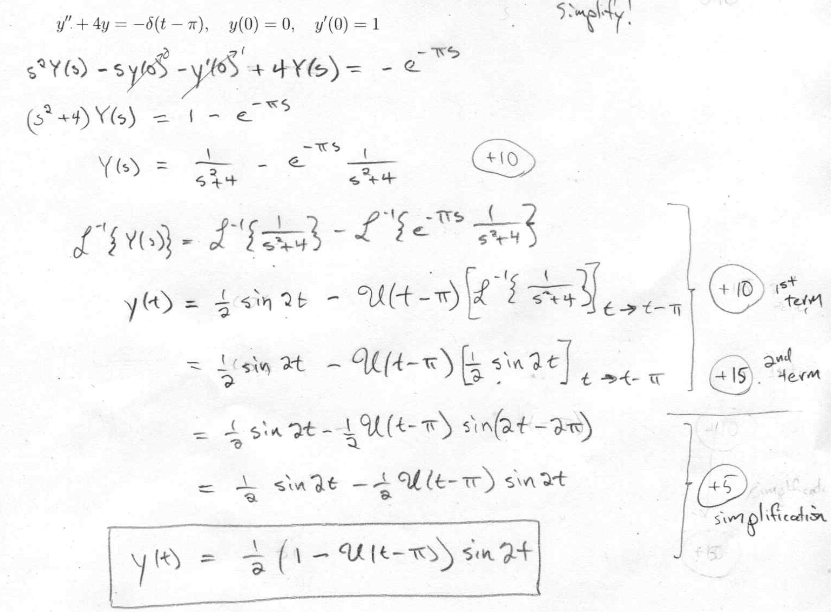 Simplify!
y'' + 4y = −δ(t − π), y(0) = 0, y'(0) = 1
s²Y(s) − sy(0)→0 − y'(0)→1 + 4Y(s) = − e^{−πs}
(s²+4) Y(s) = 1 − e^{−πs}
Y(s) = 1/(s²+4) − e^{−πs} 1/(s²+4) +10
ℒ⁻¹{Y(s)} = ℒ⁻¹{1/(s²+4)} − ℒ⁻¹{e^{−πs} 1/(s²+4)}
y(t) = 1/2 sin 2t − 𝒰(t−π) [ℒ⁻¹{1/(s²+4)}]_{t→t−π} +10 1st term
= 1/2 sin 2t − 𝒰(t−π) [1/2 sin 2t]_{t→t−π} +15 2nd term
= 1/2 sin 2t − 1/2 𝒰(t−π) sin(2t−2π)
= 1/2 sin 2t − 1/2 𝒰(t−π) sin 2t +5 simplification
y(t) = 1/2 (1 − 𝒰(t−π)) sin 2t